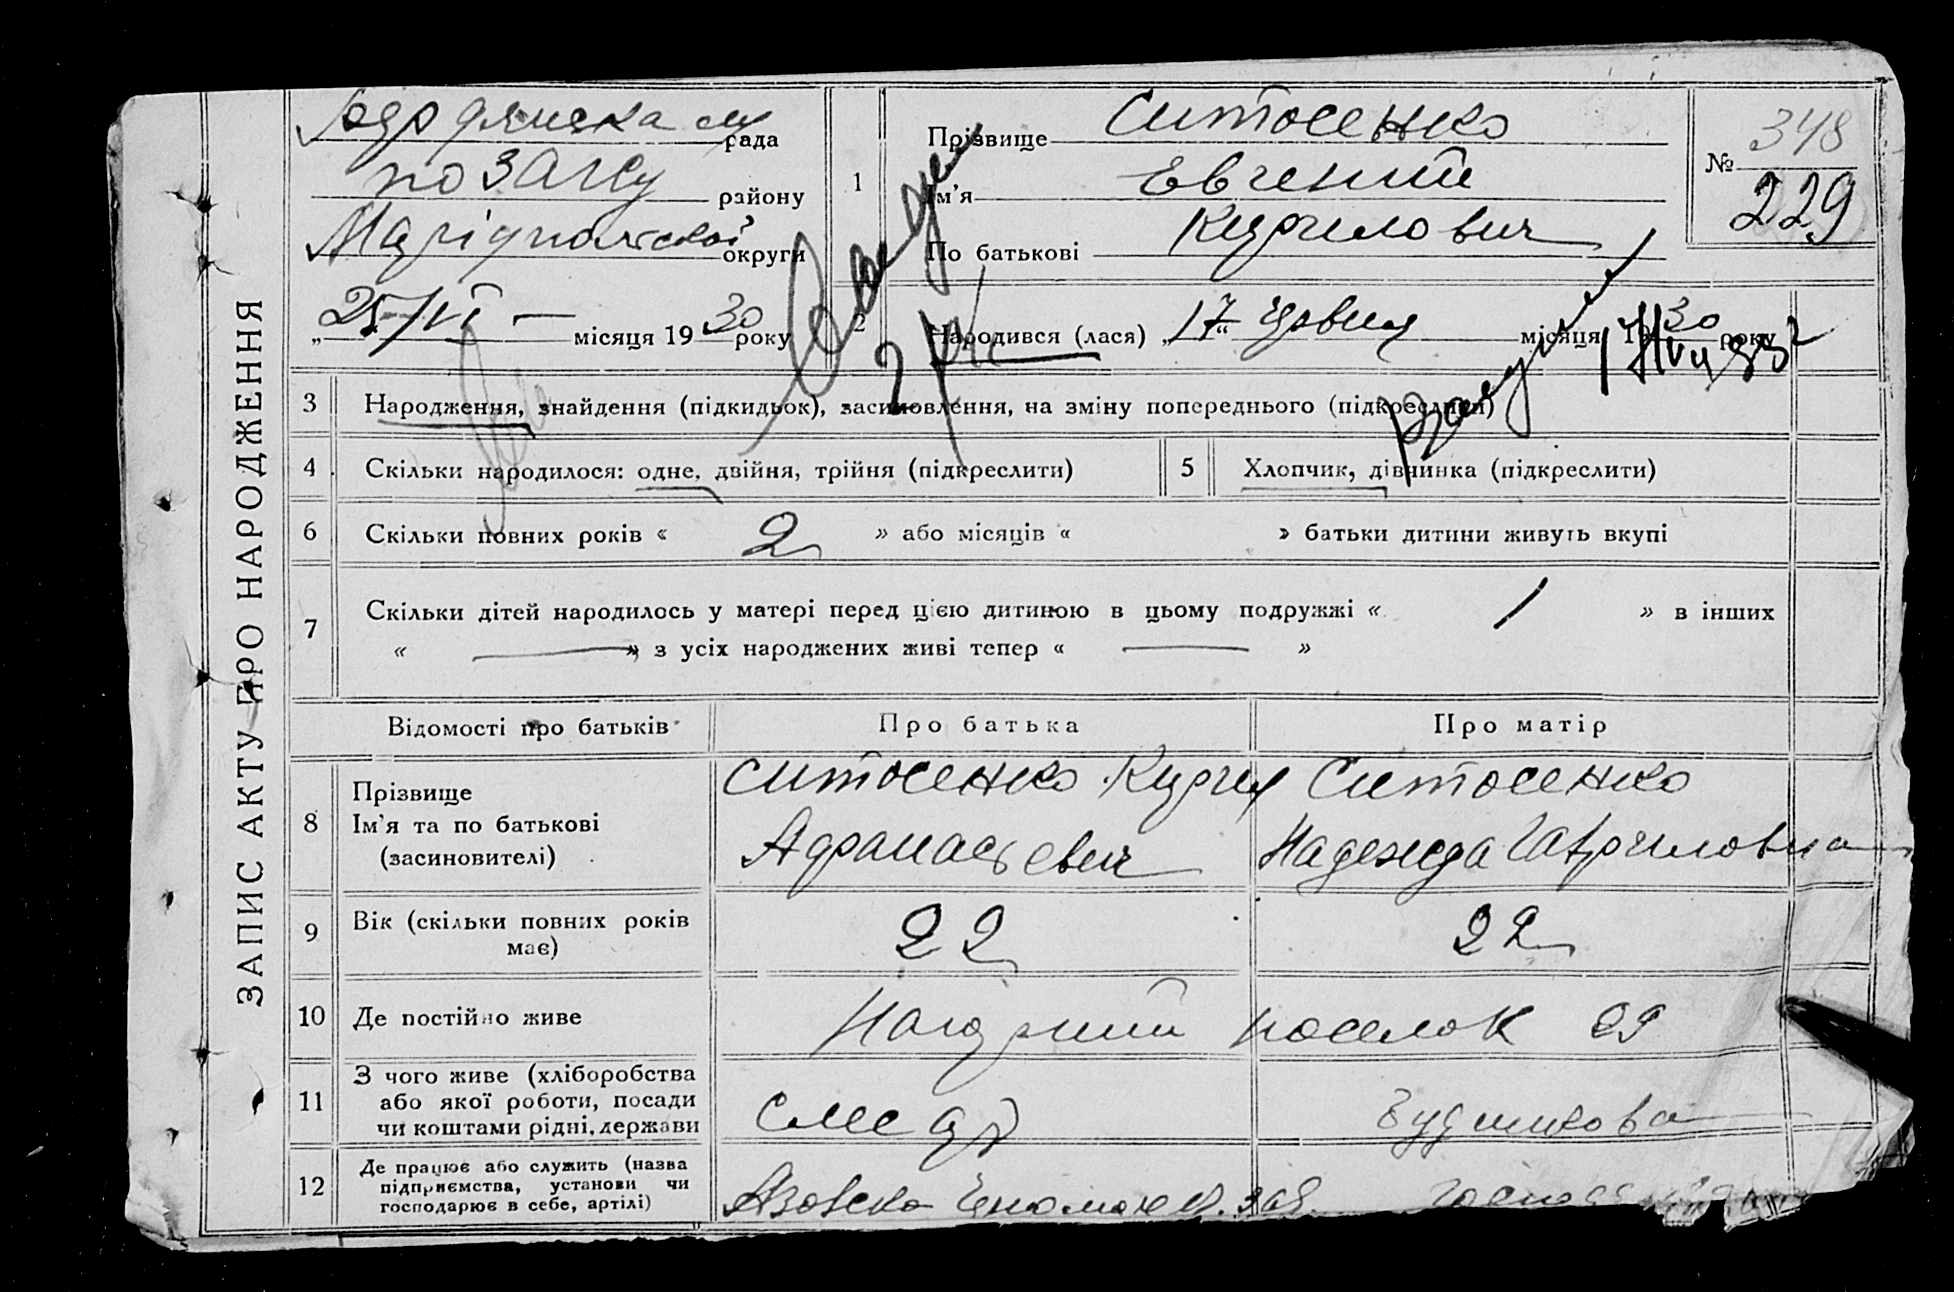 ЗАПИС АКТУ ПРО НАРОДЖЕННЯ
Бердянска рада
по ЗАГСу району
Маріупольської округи
„25/VI — місяця 1930 року
1
Прізвище Ситосенко
Ім’я Евгений
По батькові Кирилович
№ 348
229
2
Народився (лася) „17“ Червня місяця 1930 року
3 Народження, знайдення (підкидьок), засиновлення, на зміну попереднього (підкреслити)
4 Скільки народилося: одне, двійня, трійня (підкреслити)
5 Хлопчик, дівчинка (підкреслити)
6 Скільки повних років « 2 » або місяців « » батьки дитини живуть вкупі
7 Скільки дітей народилось у матері перед цією дитиною в цьому подружжі « 1 » в інших
« — » з усіх народжених живі тепер « — »
Відомості про батьків Про батька Про матір
8 Прізвище
Ім’я та по батькові
(засиновителі)
Ситосенко Кирил
Афанасьевич
Ситосенко
Надежда Гавриловна
9 Вік (скільки повних років
має)
22 22
10 Де постійно живе
поселок 29
11 З чого живе (хліборобства
або якої роботи, посади
чи коштами рідні, держави
Слесар
12 Де працює або служить (назва
підприємства, установи чи
господарює в себе, артілі)
Азовско